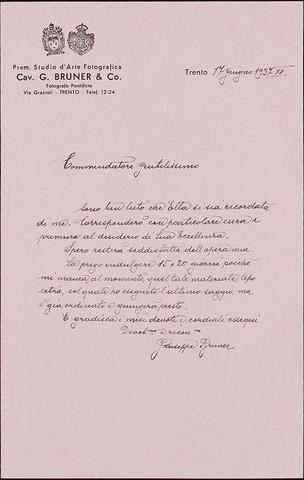 Prem. Studio d'Arte Fotografica
Cav. G. BRUNER & Co.
Fotografo Pontificio
Via Grazioli - TRENTO - Telef. 12-24
Trento 17 giugno 1937 XV.
Commendatore gentilissimo
sono ben lieto che Ella si sia ricordata
di me. Corrisponderò con particolare cura e
premura al desiderio di Sua Eccellenza.
Spero resterà soddisfatta dell'opera mia
La prego indulgere 15 o 20 giorni poichè
mi manca al momento, quel tale materiale tipo
tetra, col quale ho eseguito l'ultimo saggio, ma
è già ordinato e giungerà presto.
E gradisca i miei devoti e cordiali ossequi
Devot.mo e ricon.mo
Giuseppe Bruner